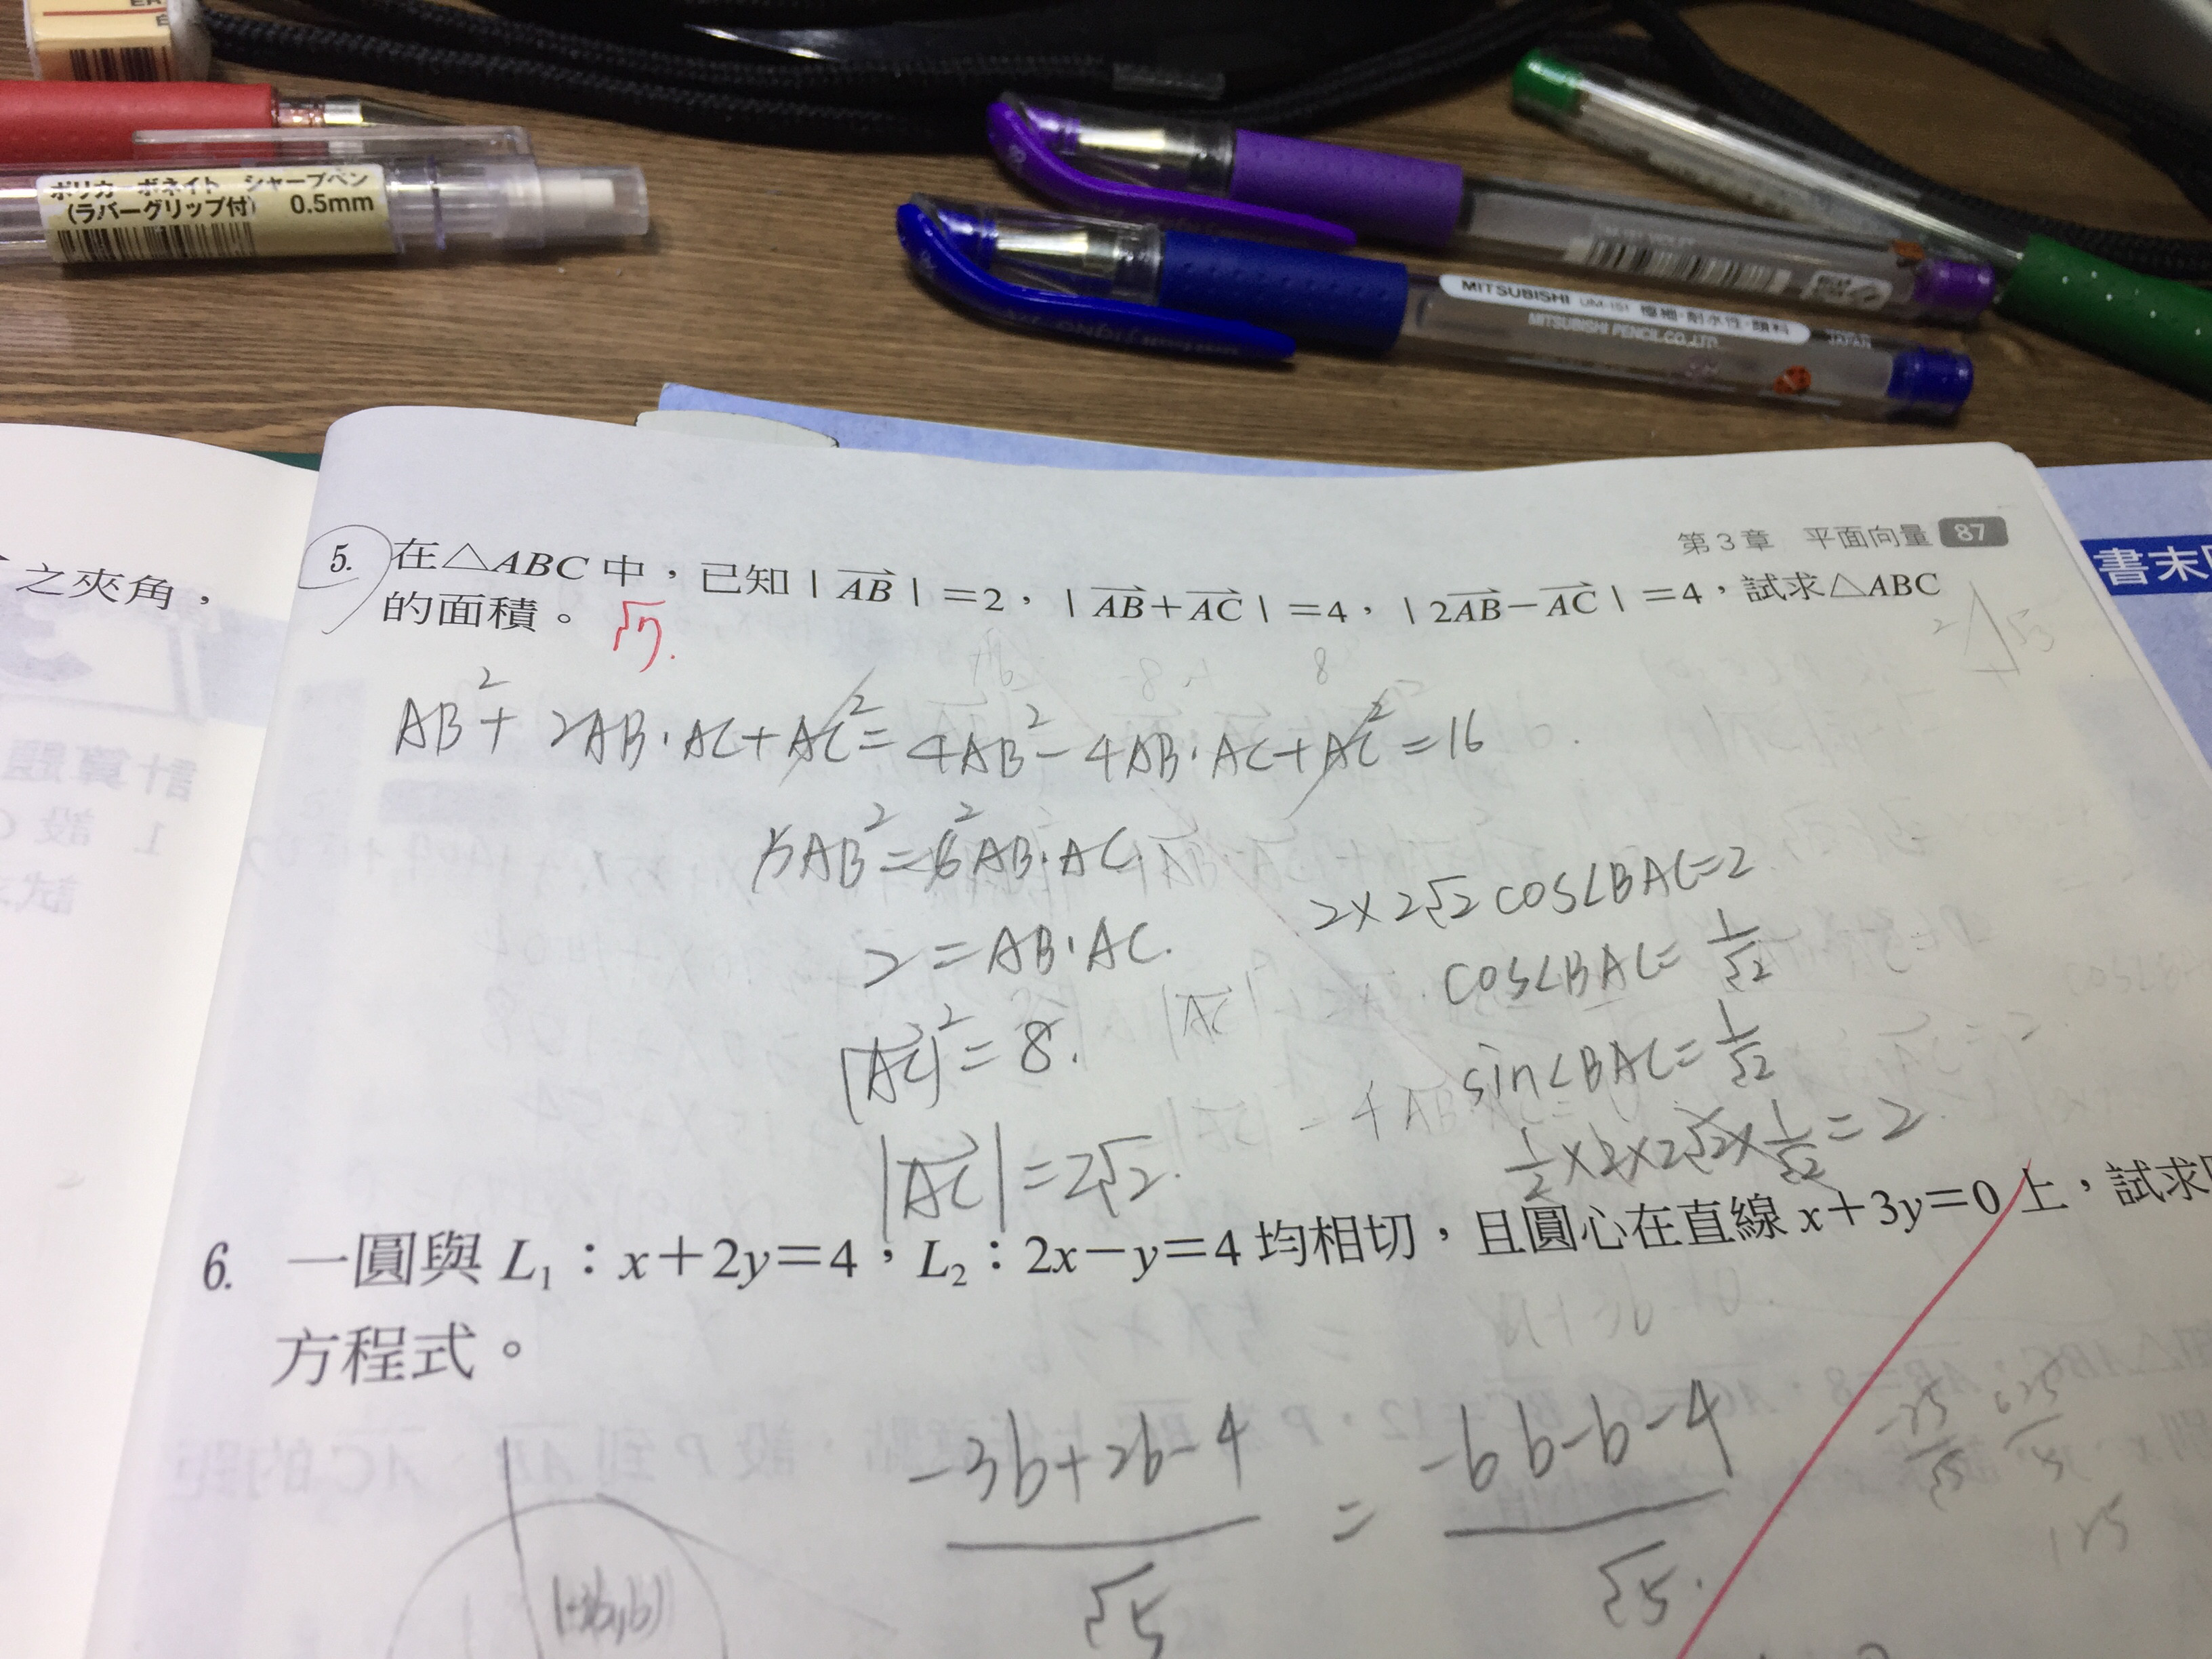 ポリカーボネイト シャープペン
（ラバーグリップ付） 0.5mm
MITSUBISHI UM-151 極細・耐水性・顔料
MITSUBISHI PENCIL CO.,LTD.
JAPAN
第3章 平面向量 87
書末
之夾角，
5. 在△ABC中，已知|AB|=2，|AB+AC|=4，|2AB−AC|=4，試求△ABC
的面積。 √7.
AB²+2AB·AC+AC²=4AB²−4AB·AC+AC²=16
2=AB·AC.
|AC|²=8.
|AC|=2√2.
2×2√2cos∠BAC=2
cos∠BAC=1/√2
sin∠BAC=1/√2
1/2×2×2√2×1/√2=2
6. 一圓與L₁：x+2y=4，L₂：2x−y=4均相切，且圓心在直線x+3y=0上，試求
方程式。
(−3b+2b−4)/√5 = (−6b−b−4)/√5.
(−3b,b)